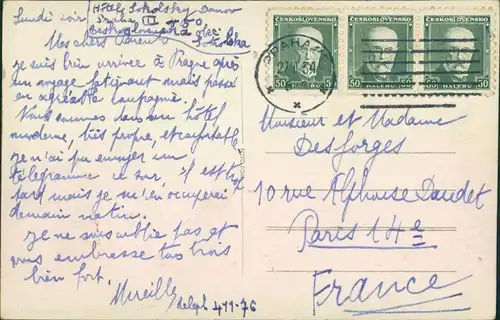 Lundi soir
Hôtel Sokolsky Domov
Praha III 450
Mes chers Parents
je suis bien arrivée à Prague après
un voyage fatiguant mais passé
en agréable compagnie.
Nous sommes dans un hôtel
moderne, très propre, et confortable
je n'ai pu envoyer un
télégramme ce soir. il est trop
tard mais je m'en occuperai
demain matin.
je ne vous oublie pas et
vous embrasse tous trois
bien fort.
Mireille
411-76
ČESKOSLOVENSKO
50 HALÉŘŮ 50
ČESKOSLOVENSKO
50 HALÉŘŮ 50
ČESKOSLOVENSKO
50 HALÉŘŮ 50
PRAHA
Monsieur et Madame
Desforges
10 rue Alphonse Daudet
Paris 14e
France